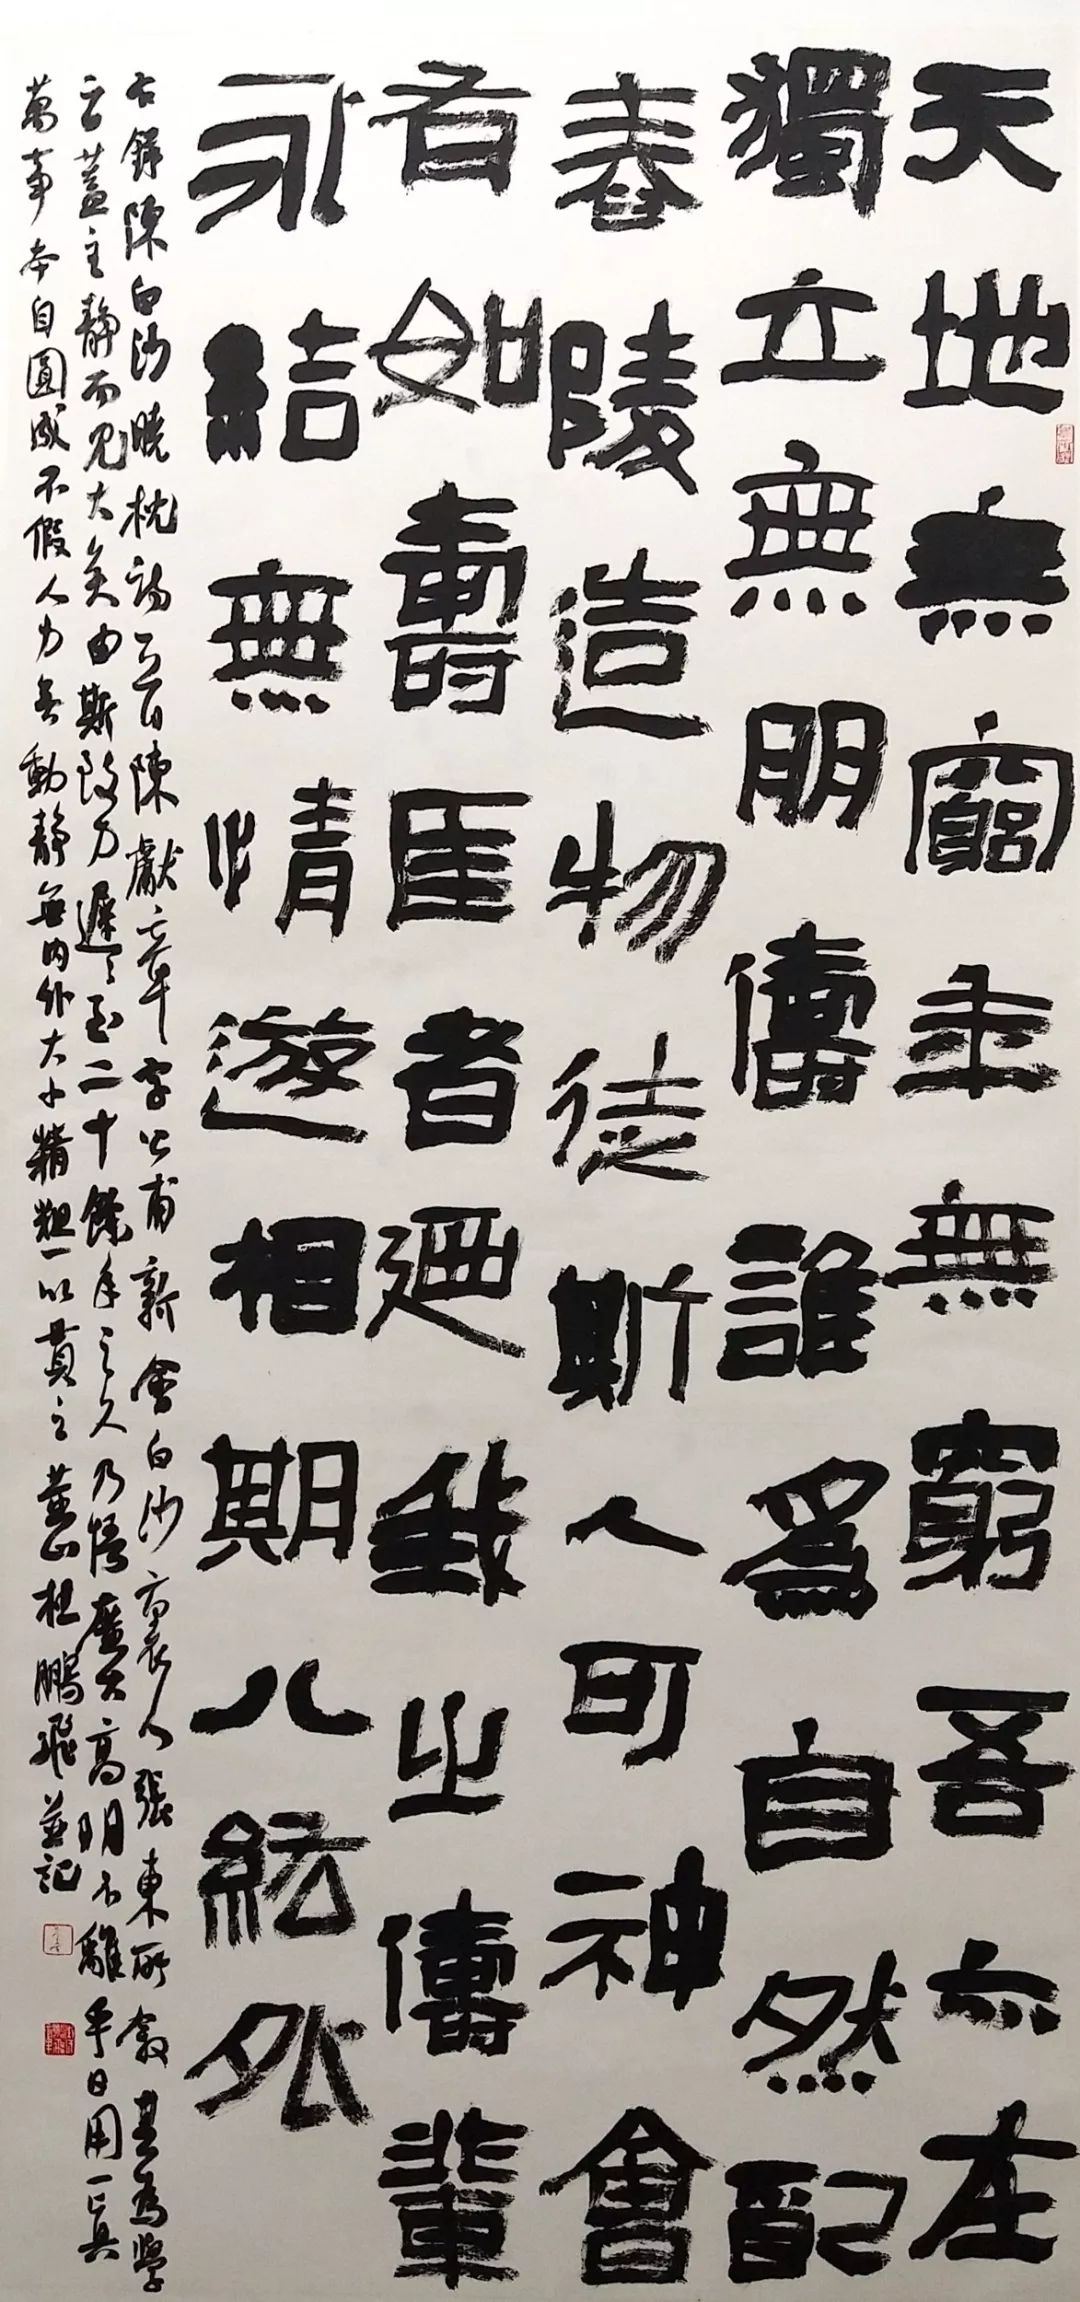 天地無窮年無窮吾亦在
獨立無朋儔誰為自然配
舂陵造物徒斯人可神會
有如壽厓者廼我之儔輩
永結無情遊相期八紘外
右錄陳白沙曉枕詩一首陳獻章字公甫新會白沙裏人張東所敘其為學
云蓋主靜而見大矣由斯致力遲々至二十餘年之久乃悟廣大高明不離乎日用一真
萬事本自圓成不假人力無動靜無內外大小精粗一以貫之 杜鵬飛並記